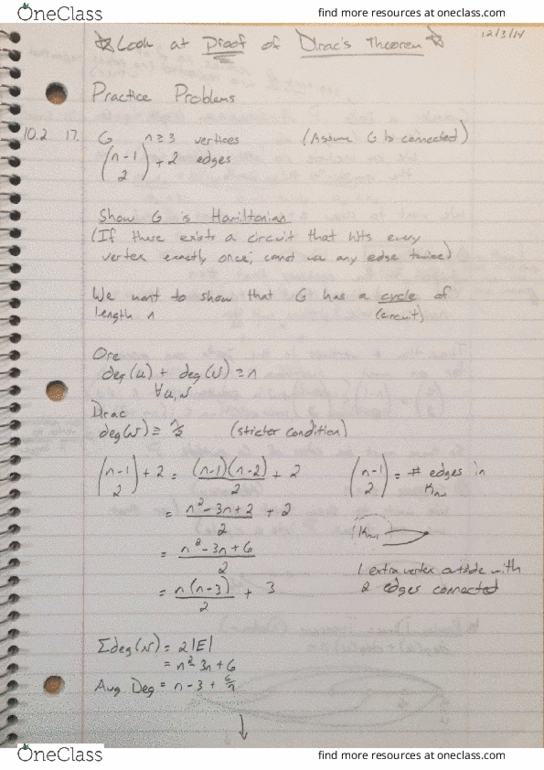 OneClass
find more resources at oneclass.com
12/3/14
☆ Look at Proof of Dirac's Theorem ☆
Practice Problems
10.2 17. G n≥3 vertices (Assume G is connected)
(n-1 2) + 2 edges
Show G is Hamiltonian
(If there exists a circuit that hits every
vertex exactly once; cannot use any edge twice)
We want to show that G has a cycle of
length n (circuit)
Ore
deg(u) + deg(v) ≥ n
∀u,v
Dirac
deg(v) ≥ n/2 (stricter condition)
(n-1 2) + 2 = (n-1)(n-2)/2 + 2
(n-1 2) = # edges in
Kn-1
= n²-3n+2/2 + 2
Kn-1
= n²-3n+6/2
1 extra vertex outside with
2 edges connected
= n(n-3)/2 + 3
Σdeg(v) = 2|E|
= n²-3n+6
Avg. Deg = n-3 + 6/n
↓
OneClass
find more resources at oneclass.com